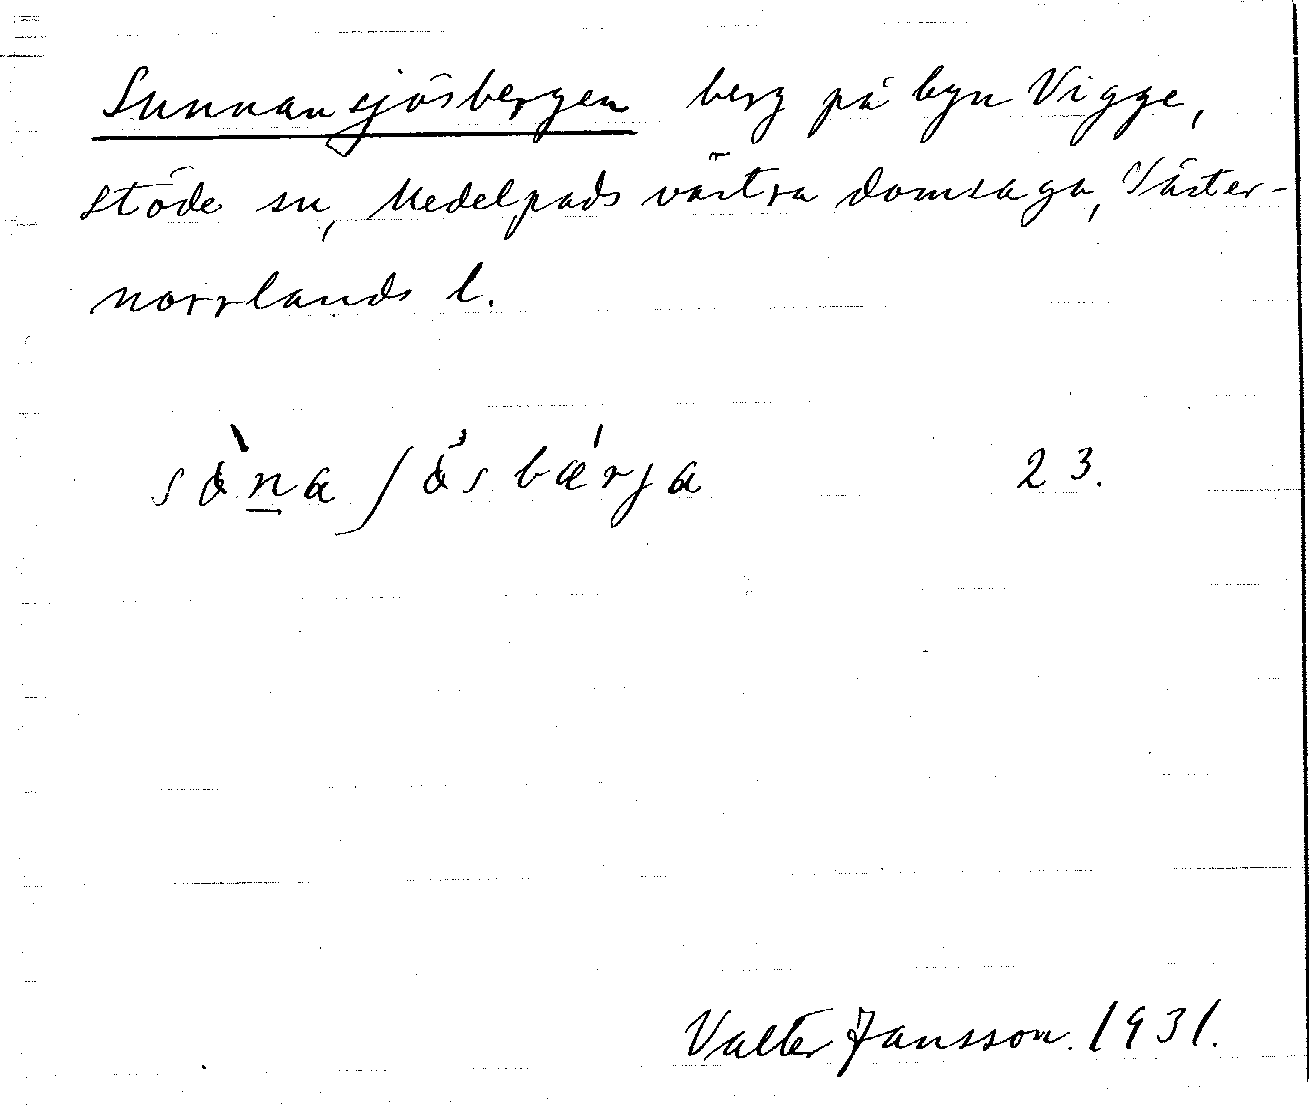 Sunnansjösbergen berg på byn Vigge,
Stöde sn, Medelpads västra domsaga, Väster-
norrlands l.
sòna ʃo̊sbærja 23.
Valter Jansson. 1931.